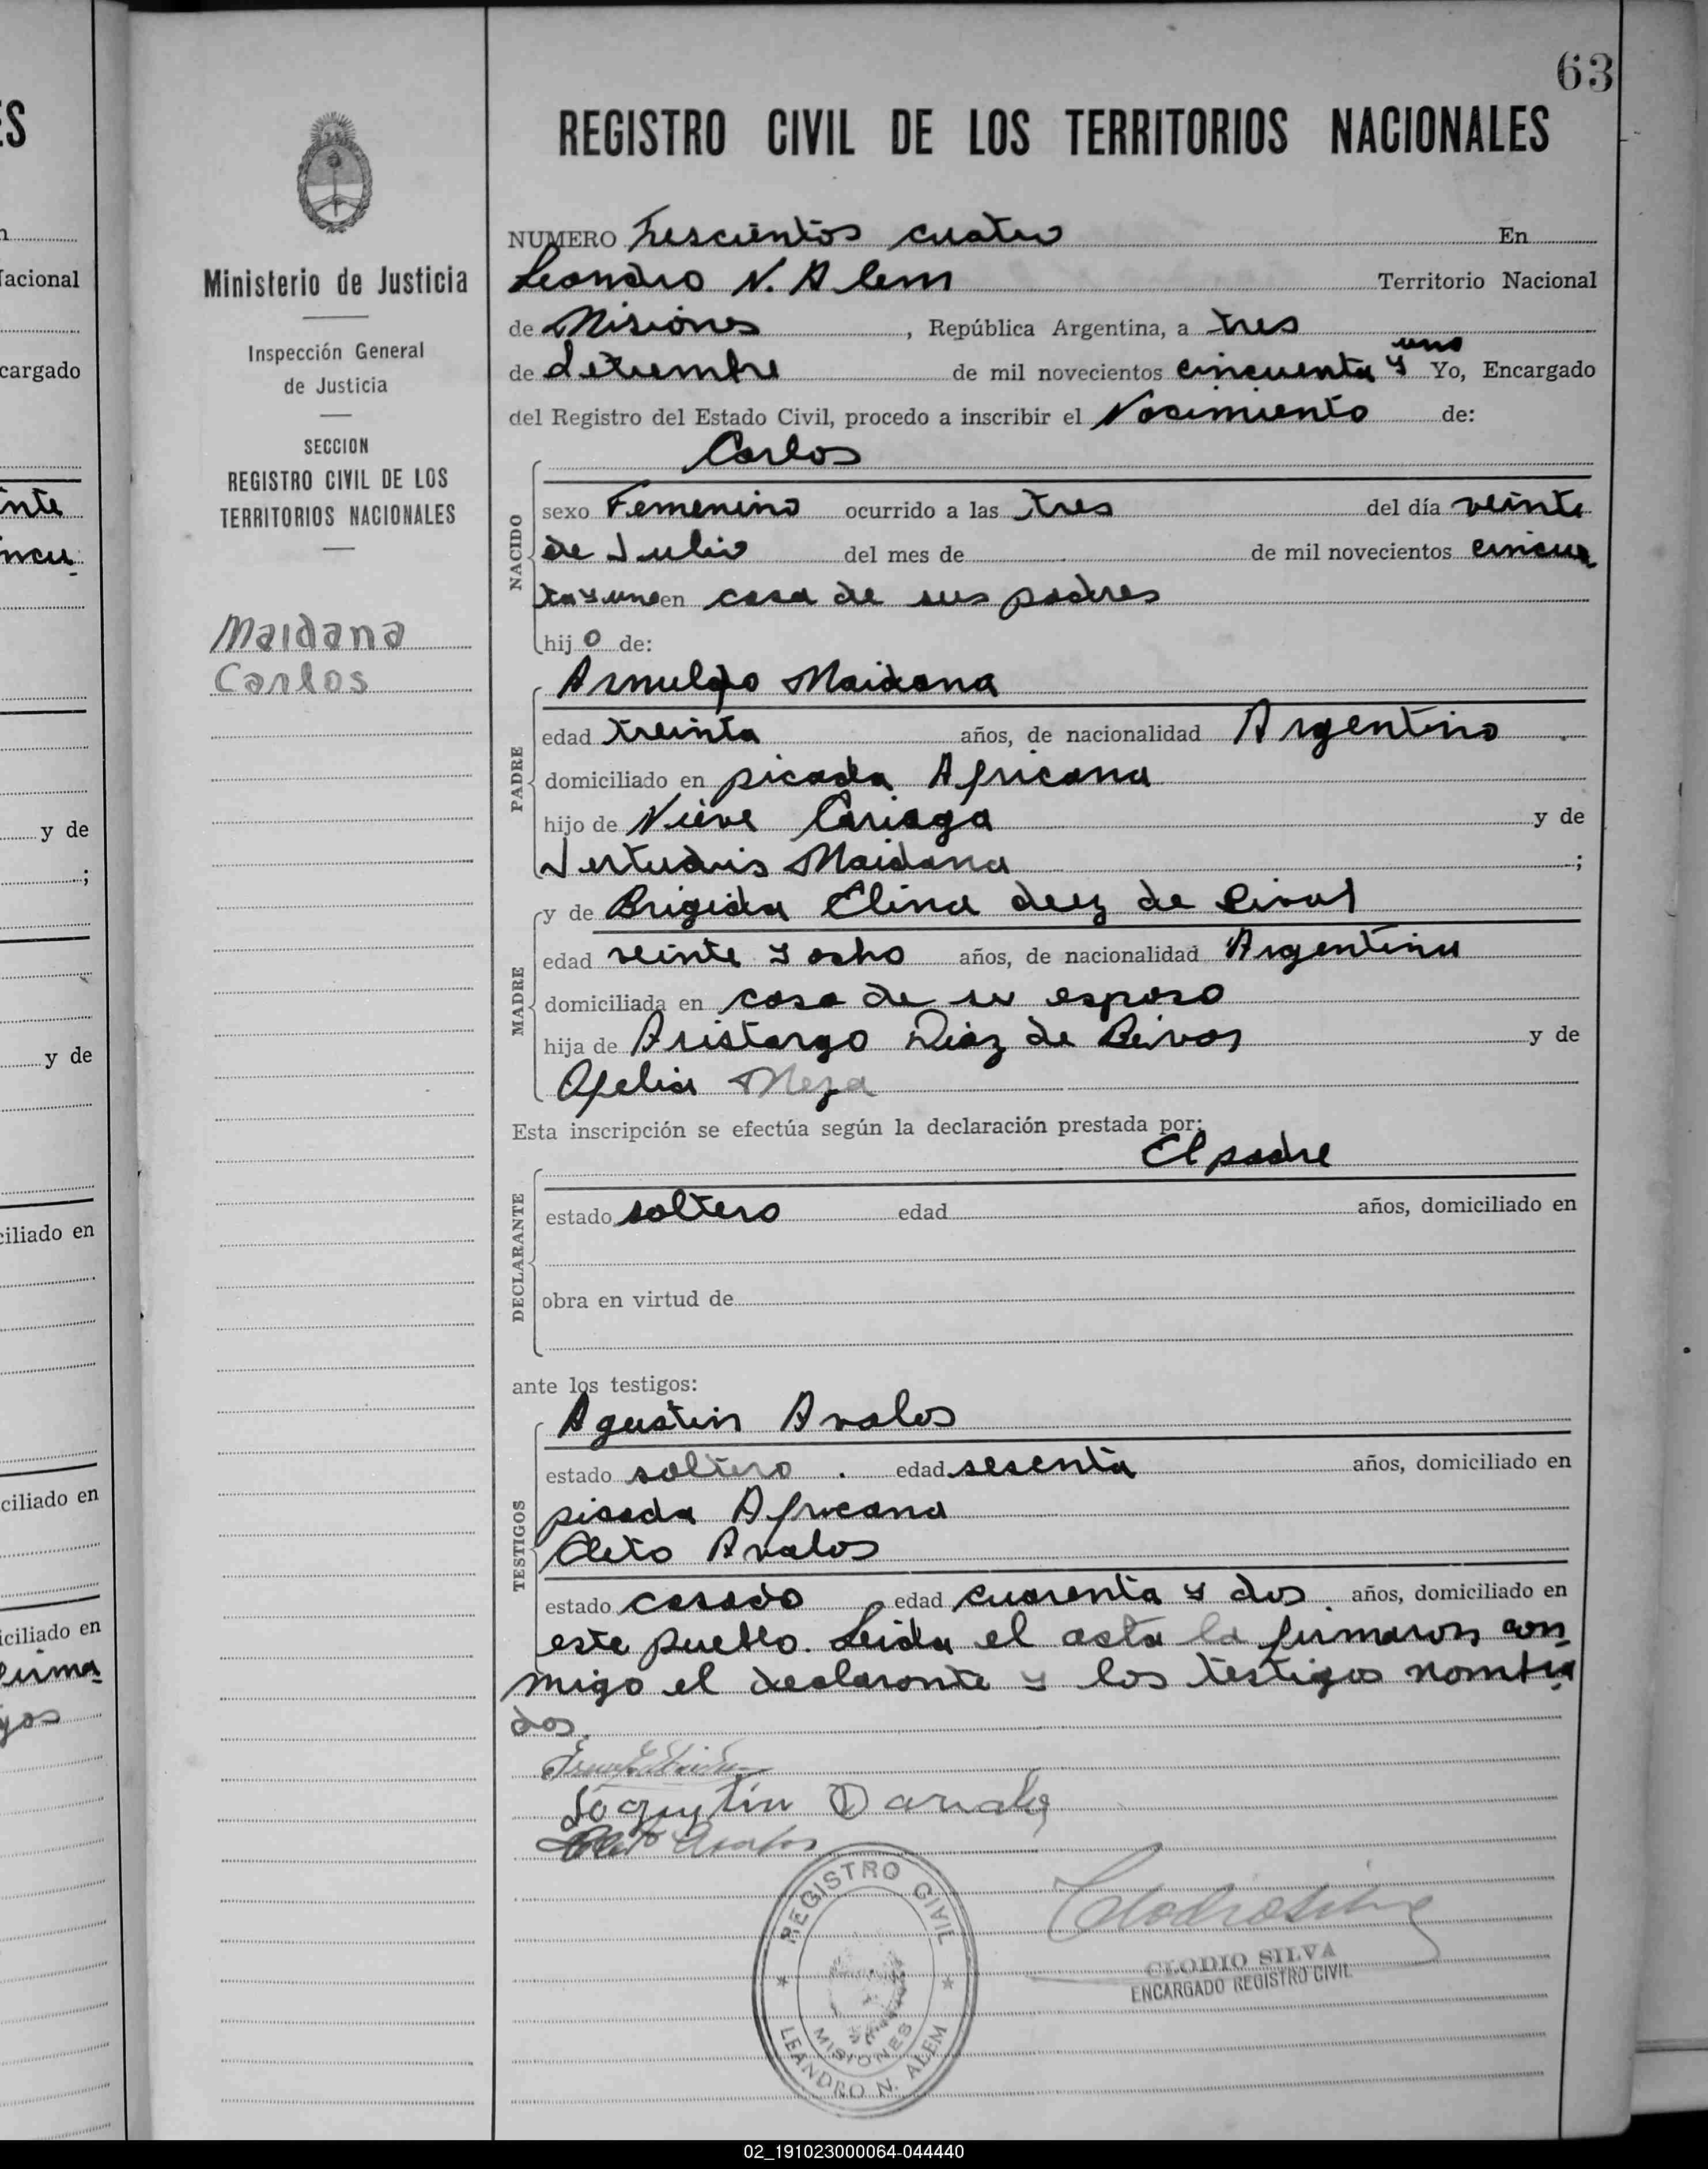 63
REGISTRO CIVIL DE LOS TERRITORIOS NACIONALES
Ministerio de Justicia
Inspección General
de Justicia
SECCION
REGISTRO CIVIL DE LOS
TERRITORIOS NACIONALES
Maidana
Carlos
NUMERO Trescientos cuatro En
Leandro N. Alem Territorio Nacional
de Misiones, República Argentina, a tres
de Setiembre de mil novecientos cincuenta y uno Yo, Encargado
del Registro del Estado Civil, procedo a inscribir el Nacimiento de:
Carlos
NACIDO
sexo Femenino ocurrido a las tres del día veinte
de Julio del mes de de mil novecientos cincuen
ta y uno en casa de sus padres
hijo de:
PADRE
Arnulfo Maidana
edad treinta años, de nacionalidad Argentino
domiciliado en picada Africana
hijo de Nieve Cariaga y de
Maidana;
MADRE
y de Brigida Elina de
edad veinte y ocho años, de nacionalidad Argentina
domiciliada en casa de su esposo
hija de Aristargo Diaz de y de
Ofelia Meza
Esta inscripción se efectúa según la declaración prestada por:
El padre
DECLARANTE
estado soltero edad años, domiciliado en
obra en virtud de
ante los testigos:
TESTIGOS
Agustin Avalos
estado soltero . edad sesenta años, domiciliado en
picada Africana
Cleto Avalos
estado casado edad cuarenta y dos años, domiciliado en
este pueblo. Leida el acta la firmaron con
migo el declarante y los testigos nombra
dos.
Cleto Avalos
REGISTRO CIVIL
MISIONES
LEANDRO N. ALEM
CLODIO SILVA
ENCARGADO REGISTRO CIVIL
02_191023000064-044440